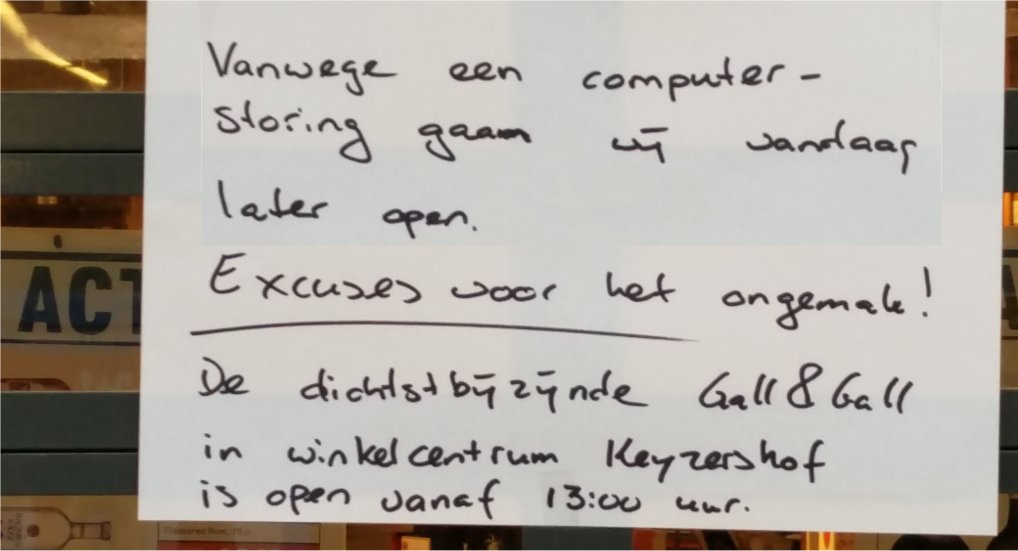 Vanwege een computer-
storing gaan wij vandaag
later open.
Excuses voor het ongemak!
De dichtstbijzijnde Gall & Gall
in winkelcentrum Keyzershof
is open vanaf 13:00 uur.
ACT